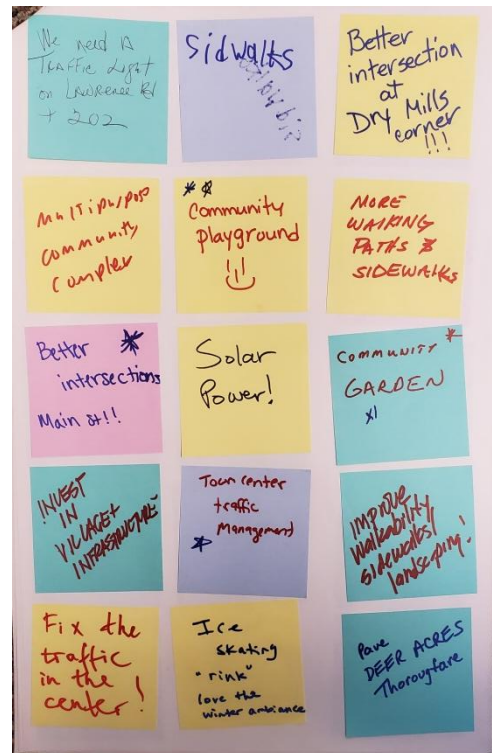 We need A
Traffic Light
on Lawrence Rd
+ 202
Sidwalks
Better
intersection
at
Dry Mills
corner
!!!
Multipurpose
community
complex
Community
Playground
MORE
WALKING
PATHS &
SIDEWALKS
Better
intersections
Main st!!
Solar
Power!
COMMUNITY
GARDEN
x1
INVEST
IN
VILLAGE +
INFRASTRUCTURE
Town center
traffic
Management
IMPROVE
Walkability
SIDEWALKS/
landscaping!
Fix the
traffic
in the
center!
Ice
skating
"rink"
love the
winter ambiance
Pave
DEER ACRES
Thorougfare